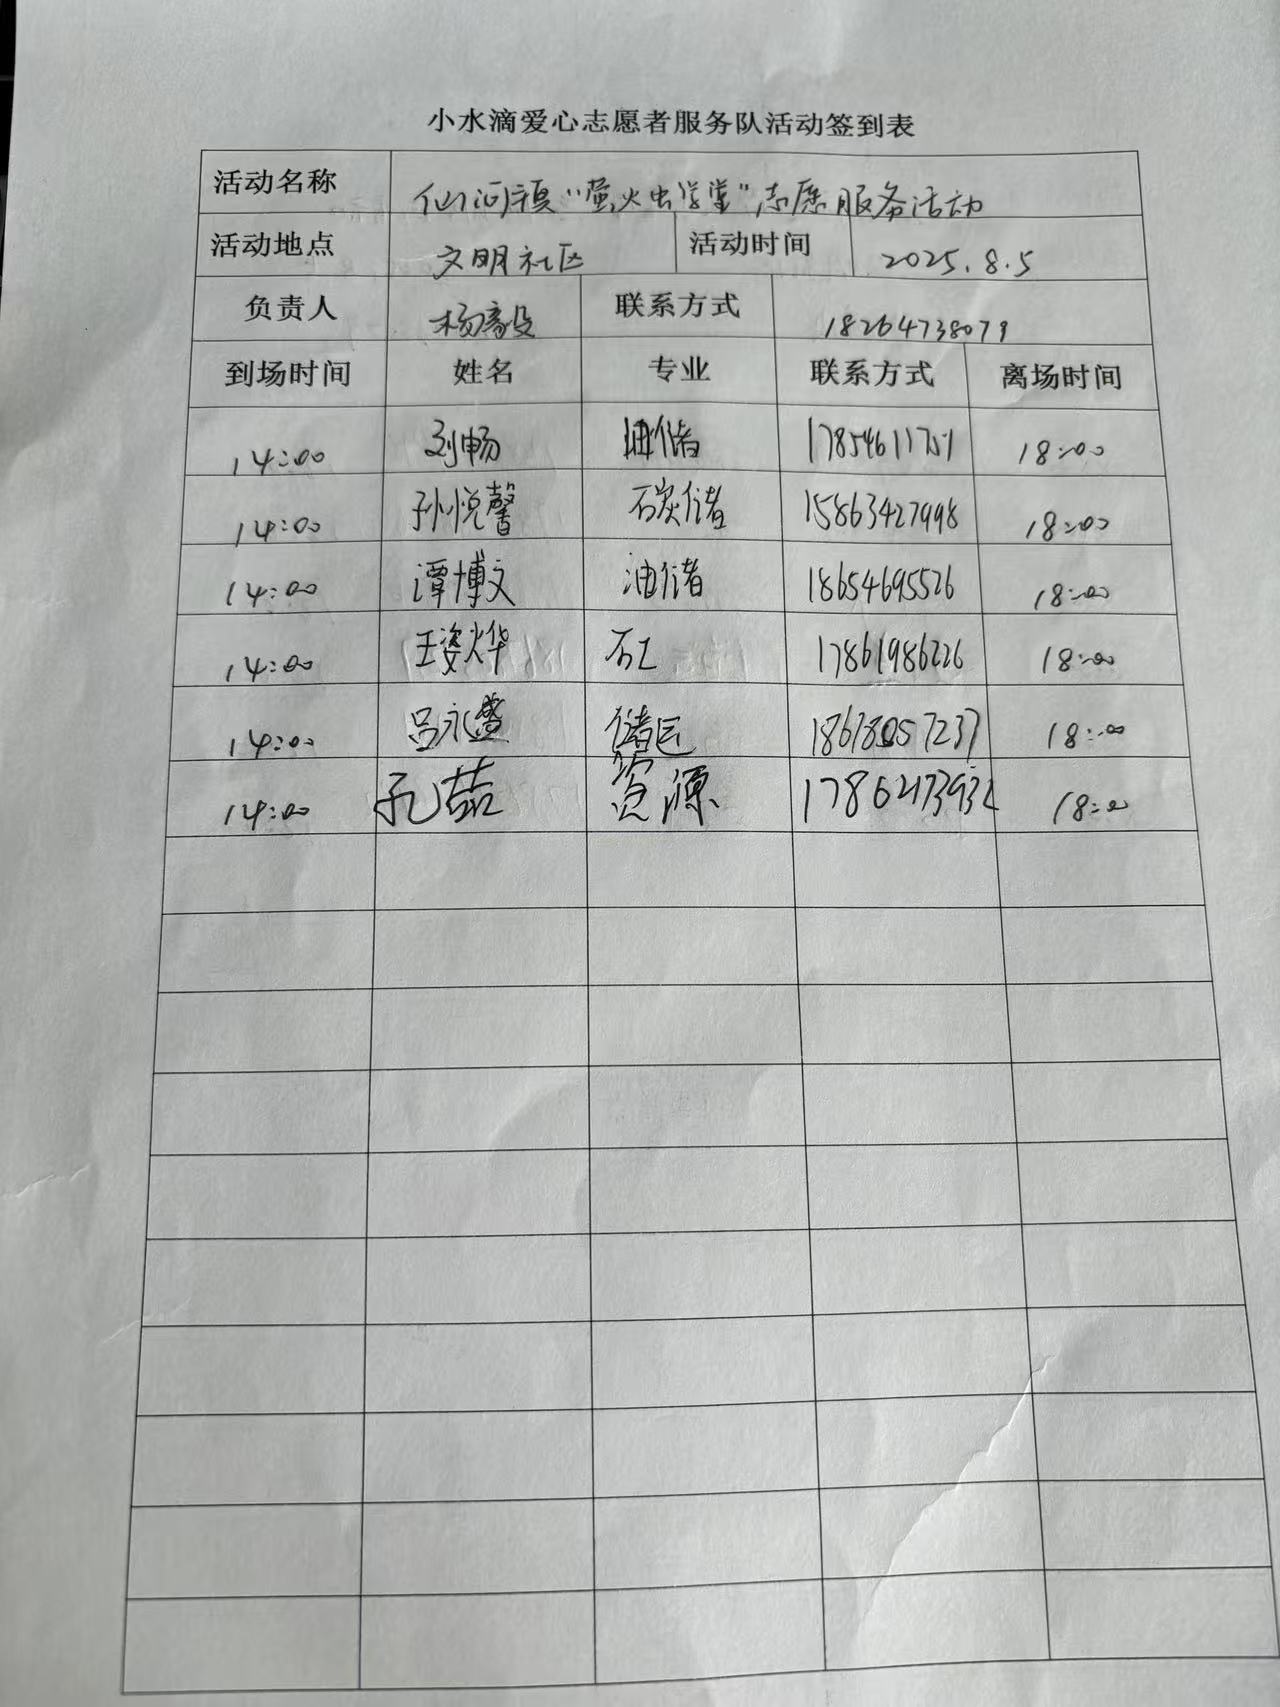 小水滴爱心志愿者服务队活动签到表
活动名称 仙河镇“萤火虫学堂”志愿服务活动
活动地点 文明社区 活动时间 2025.8.5
负责人 杨 联系方式 18264738079
到场时间 姓名 专业 联系方式 离场时间
14:00 刘畅 油储 17854611751 18:00
14:00 孙悦馨 石炭储 15863427998 18:00
14:00 谭博文 油储 18654695526 18:00
14:00 王姿烨 石工 17861986226 18:00
14:00 吕永盛 储运 18678057237 18:00
14:00 孔喆 资源 18:00